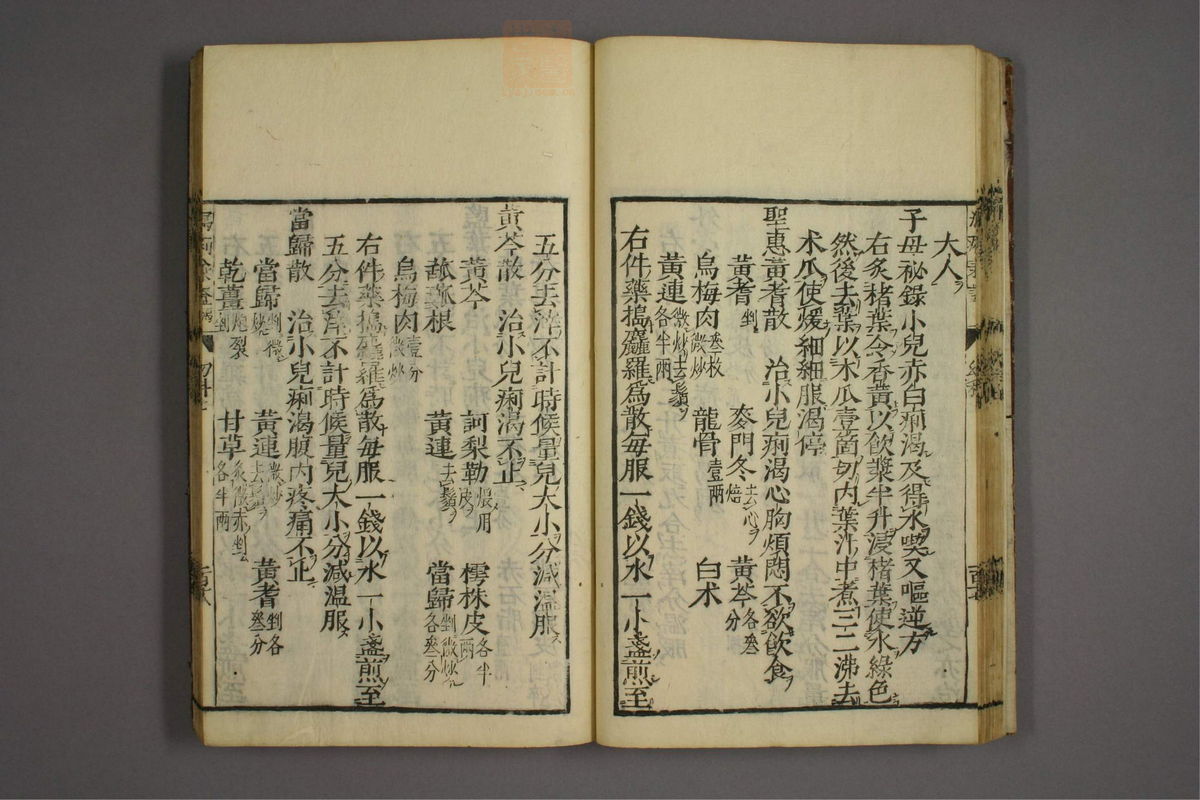 大人
子母祕錄小兒赤白痢渴及得水喫又嘔逆方
右炙楮葉令香黃以飲漿半升浸楮葉使水綠色
然後去葉以木瓜壹箇切內葉汁中煮三二沸去
木瓜使煖細細服渴停
聖惠黃耆散 治小兒痢渴心胸煩悶不欲飲食
黃耆剉 麥門冬去心焙 黃芩各叄分
烏梅肉叄枚微炒 龍骨壹兩 白朮
黃連微炒去鬚各半兩
右件藥搗麤羅爲散每服一錢以水一小盞煎至
五分去滓不計時候量兒大小分減溫服
黃芩散 治小兒痢渴不止
黃芩 訶梨勒煨用皮 樗株皮各半兩
菰根 黃連去鬚 當歸剉微炒各叄分
烏梅肉壹分微炒
右件藥搗麤羅爲散每服一錢以水一小盞煎至
五分去滓不計時候量兒大小分減溫服
當歸散 治小兒痢渴腹內疼痛不止
當歸剉微炒 黃連微炒去鬚 黃耆剉各叄分
乾薑炮裂剉 甘草炙微赤剉各半兩